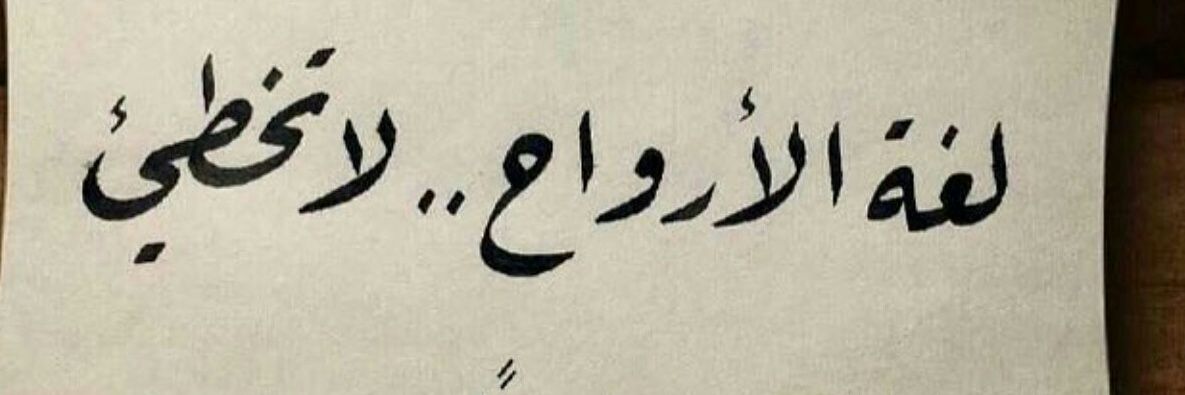 لغة الأرواح .. لا تخطئ